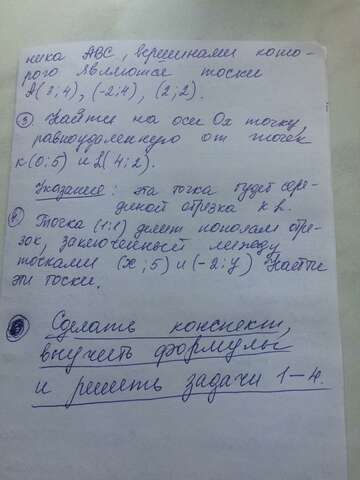 ника ABC, вершинами кото-
рого являются точки
A(3;4), (-2;4), (2;2).
③ Найти на оси Ox точку,
равноудаленную от точек
K(0;5) и L(4;2).
Указание: эта точка будет сере-
диной отрезка KL.
④ Точка (1;1) делит пополам отре-
зок, заключенный между
точками (x;5) и (-2;y) Найти
эти точки.
Сделать конспект,
выучить формулы
и решить задачи 1-4.